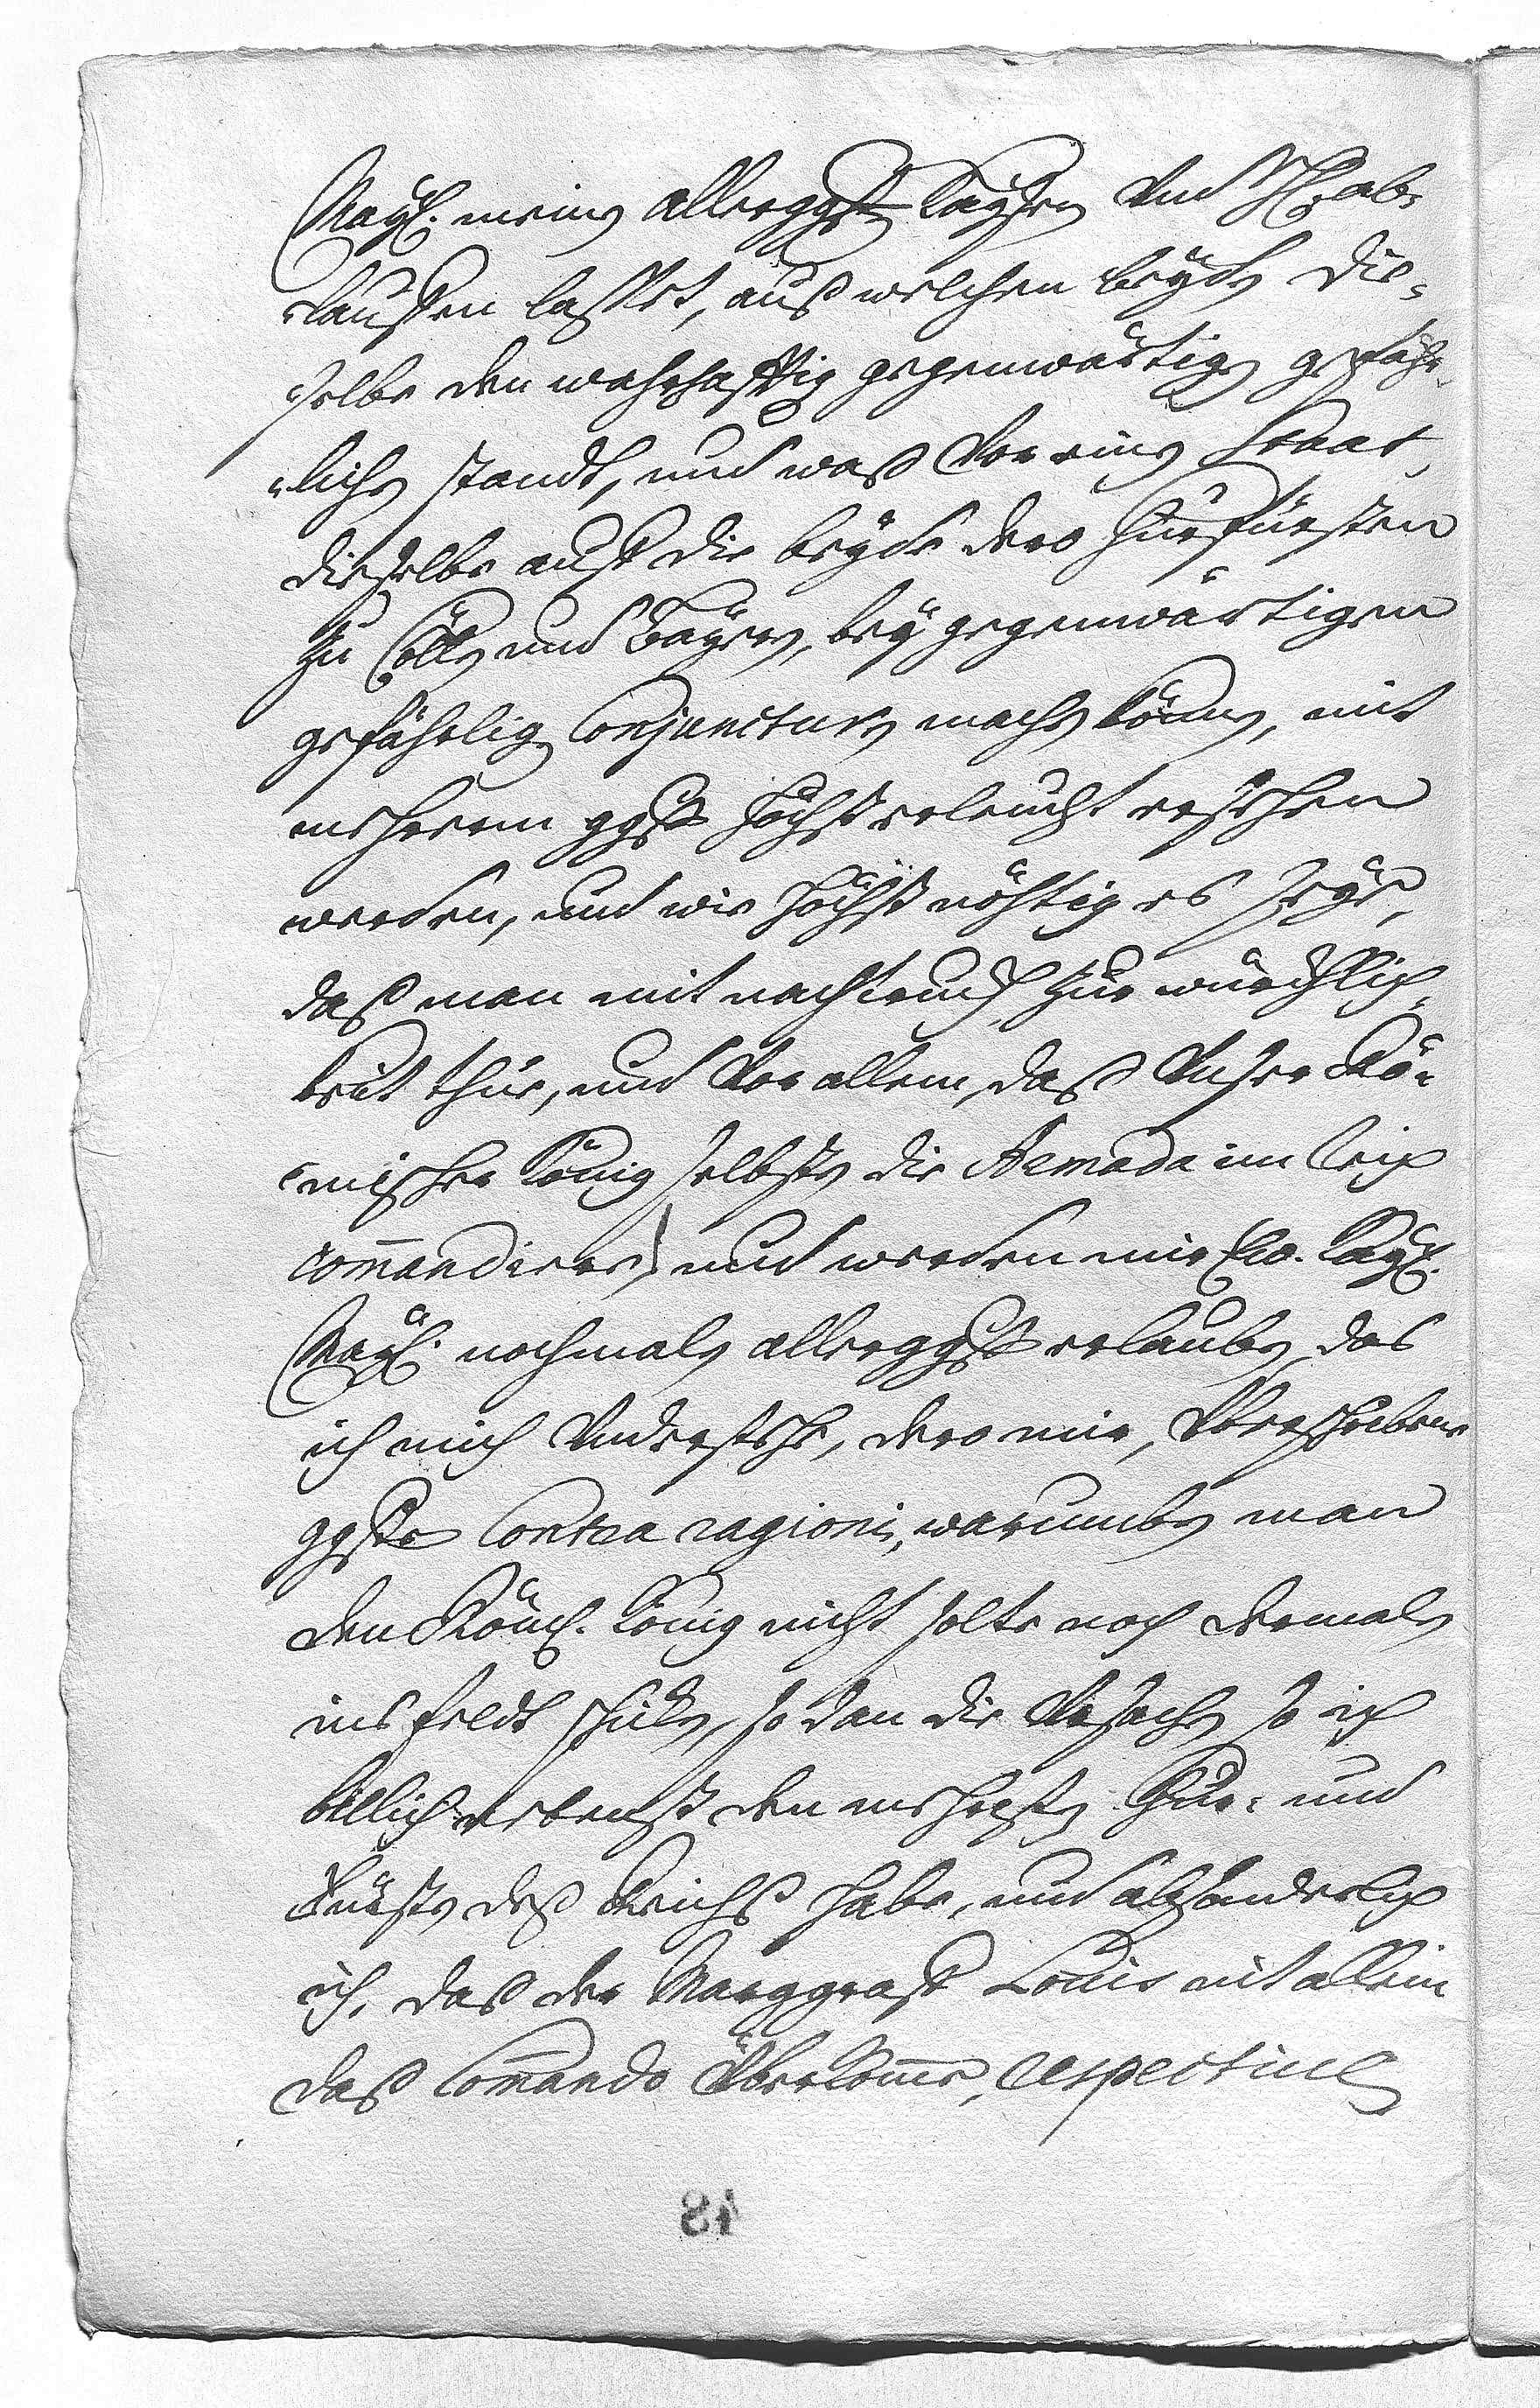 Mayl. meines allerggsten Kaysers und H. ab-
lauffen lasset, auß welchen beyden die-
selbe den wahrhafftig gegenwärtigen gefähr-
lichen standt, und waß vor einen staat
dieselbe auff die beyde dero Churfürsten
zu Cölln und Bayern, bey gegenwärtigen
gefährligen Conjuncturen machen können, mit
mehrerm ggst höchsterleucht ersehen
werden, und wie höchst nöhtig es seye,
daß man mit nachtruck zur würcklich-
keit thue, und vor allem, daß unser Rö-
mischer König selbsten die Armada im Reich
commandiere, und werden mir Ew. Kayl.
Mayl. nochmalen allerggst erlauben, das
ich mich understehe, dero mir, überschriebene
ggste Contra ragioni, warumben man
den Röml. König nicht solte noch dermalen
ins feldt schicken, so dan die Ursachen so ich
billich nebenst den mehresten Chur- und
Fürsten deß Reichs habe, und absonderlich
ich, daß der Marggraff Louis nit allein
daß Commando überkomme, respective